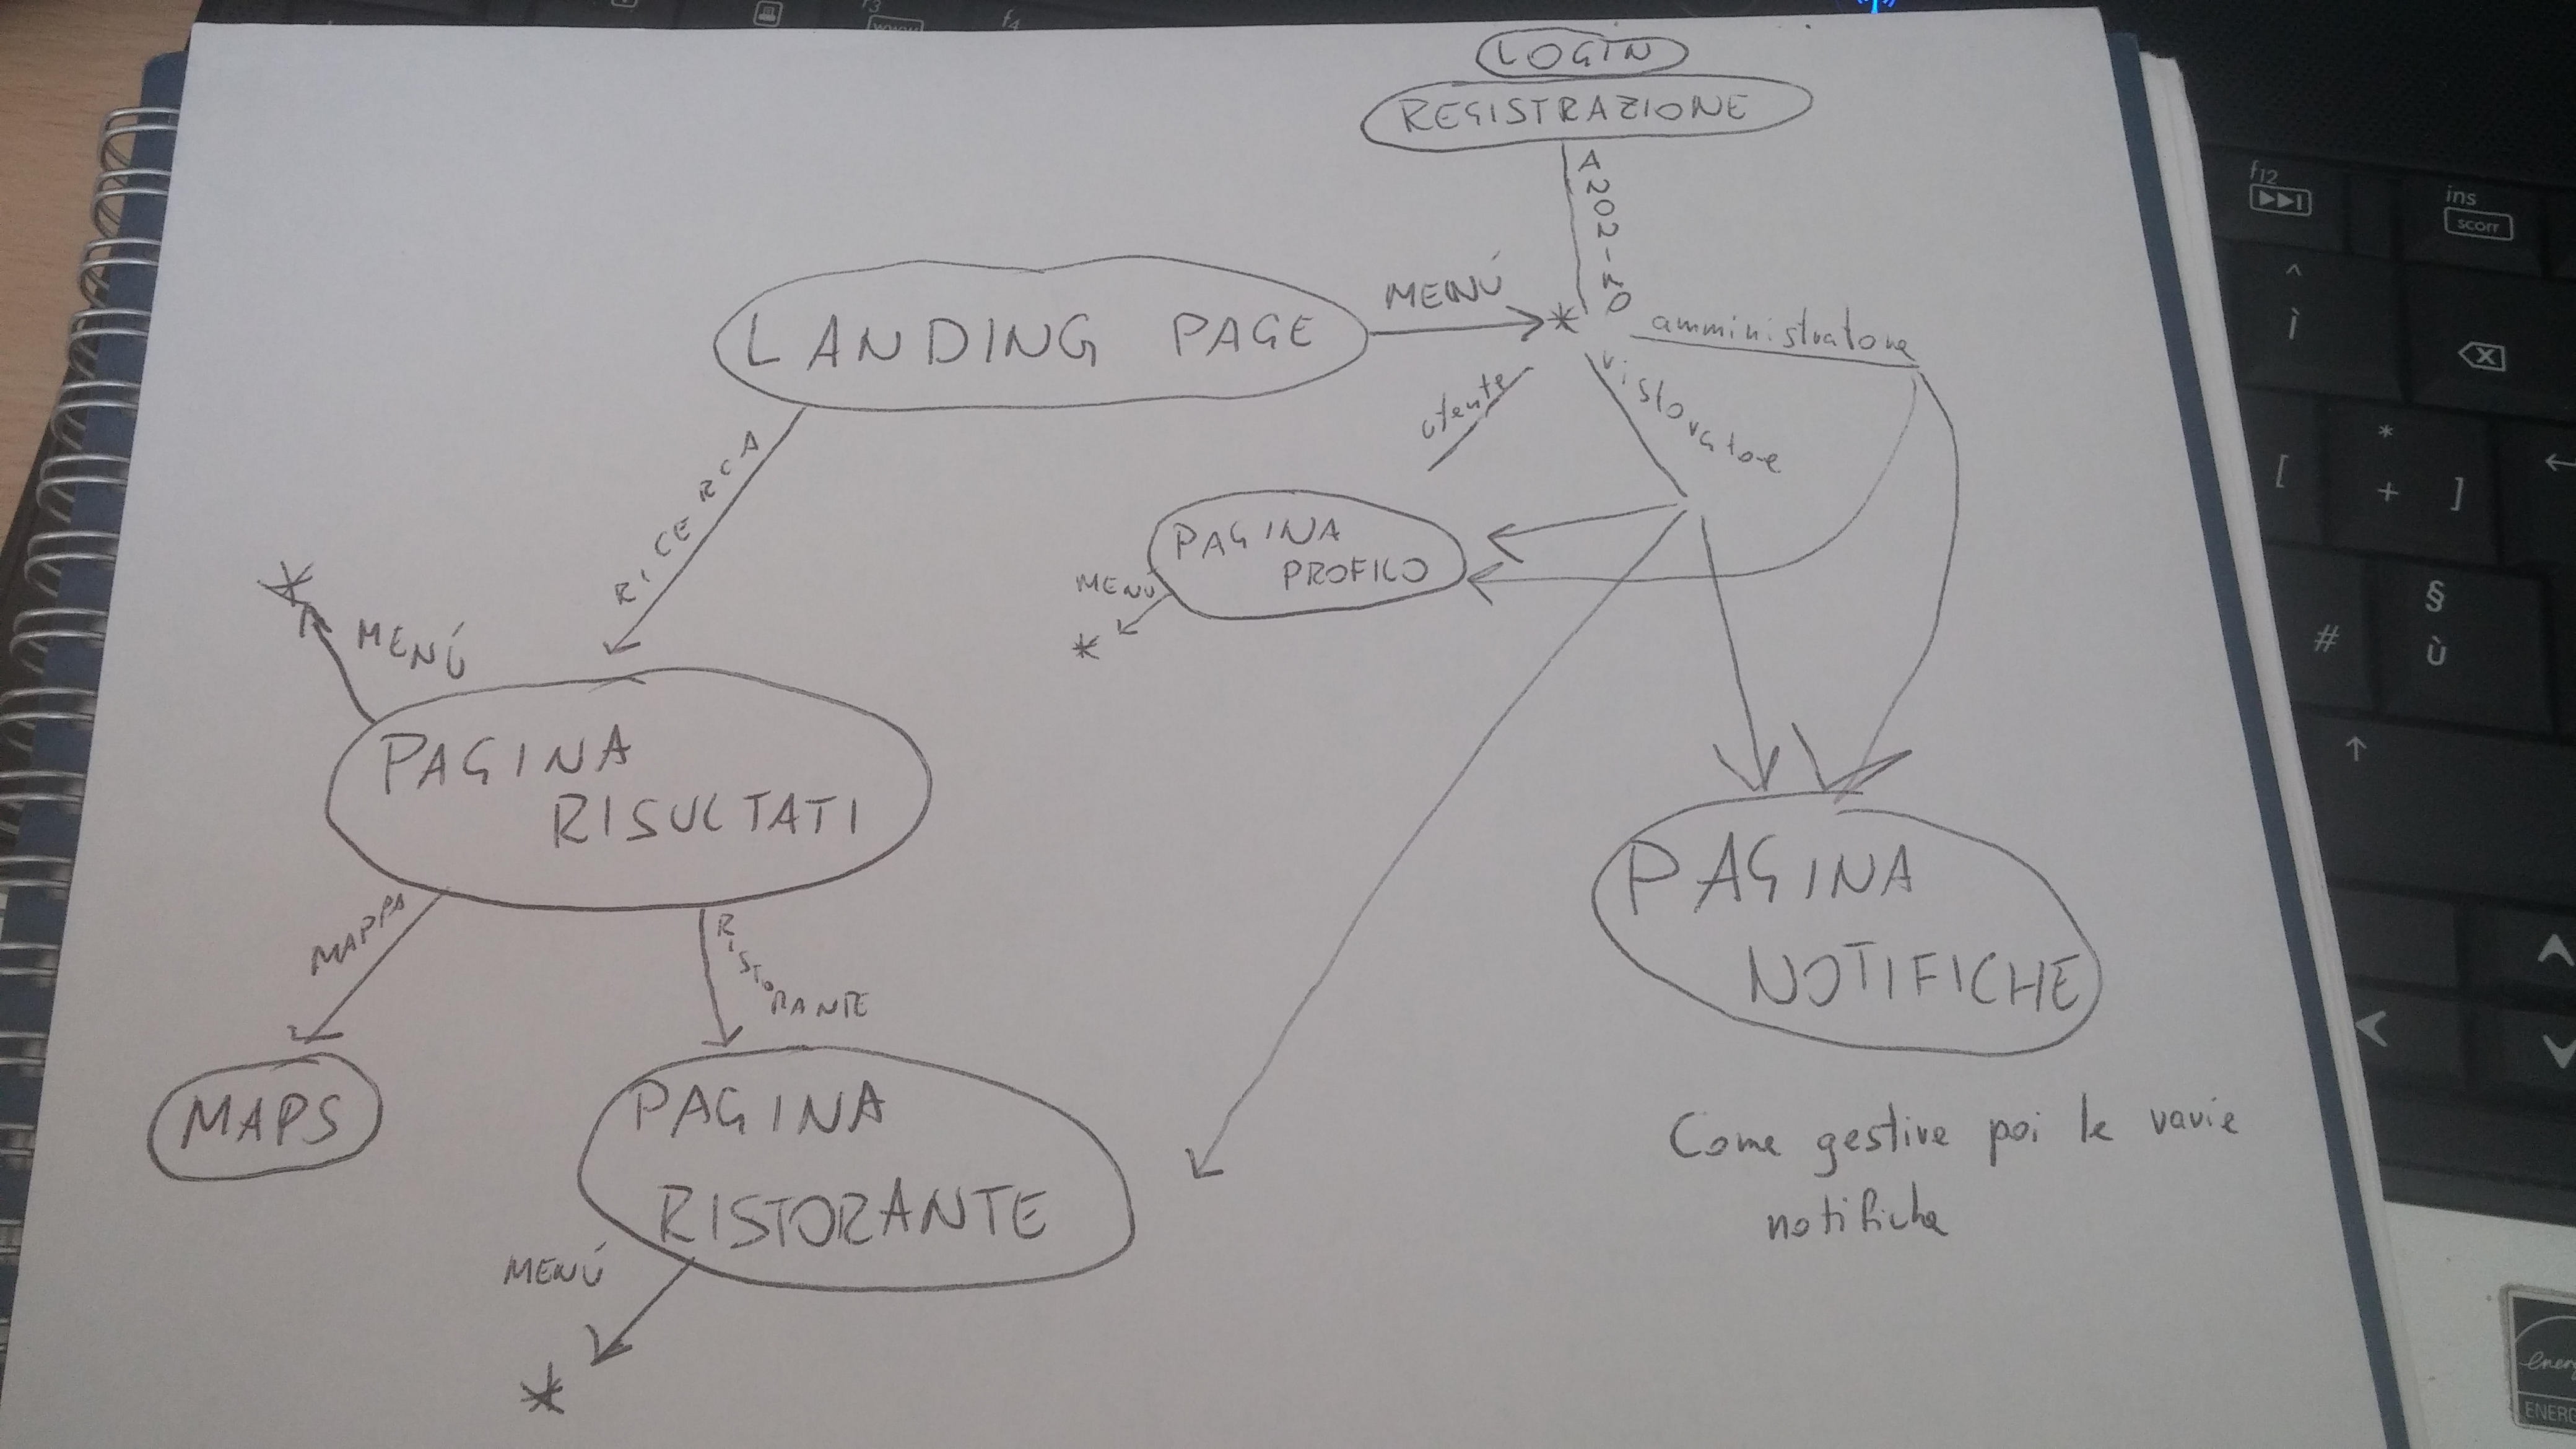 LOGIN
REGISTRAZIONE
MENÚ
*
amministratore
LANDING PAGE
utente
ristoratore
RICERCA
PAGINA
PROFILO
MENÚ
*
*
MENÚ
PAGINA
RISULTATI
MAPPA
RISTORANTE
MAPS
PAGINA
RISTORANTE
MENÚ
*
PAGINA
NOTIFICHE
Come gestire poi le varie
notifiche
f3
www
f4
f12
ins
scorr
^
ì
*
[ + ]
§
# ù
ENERG